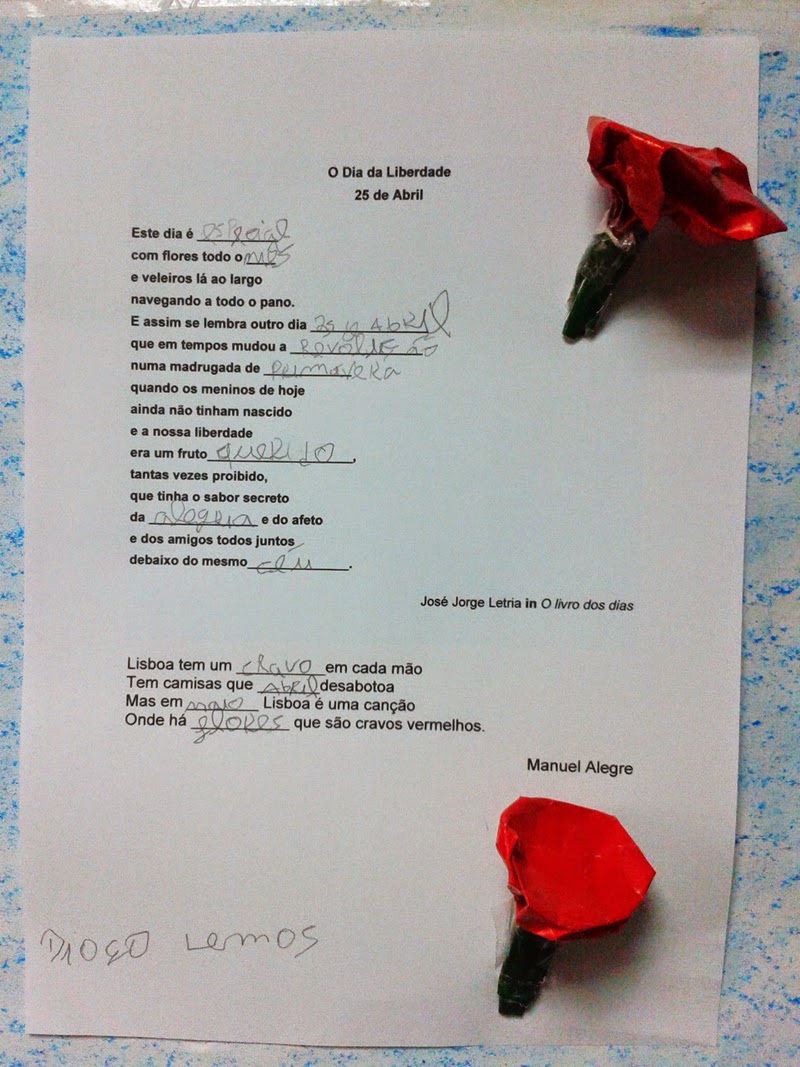 O Dia da Liberdade
25 de Abril
Este dia é especial
com flores todo o mês
e veleiros lá ao largo
navegando a todo o pano.
E assim se lembra outro dia 25 Abril
que em tempos mudou a
numa madrugada de primavera
quando os meninos de hoje
ainda não tinham nascido
e a nossa liberdade
era um fruto querido,
tantas vezes proibido,
que tinha o sabor secreto
da alegria e do afeto
e dos amigos todos juntos
debaixo do mesmo céu.
José Jorge Letria in O livro dos dias
Lisboa tem um cravo em cada mão
Tem camisas que Abril desabotoa
Mas em maio Lisboa é uma canção
Onde há flores que são cravos vermelhos.
Manuel Alegre
DIOGO Lemos